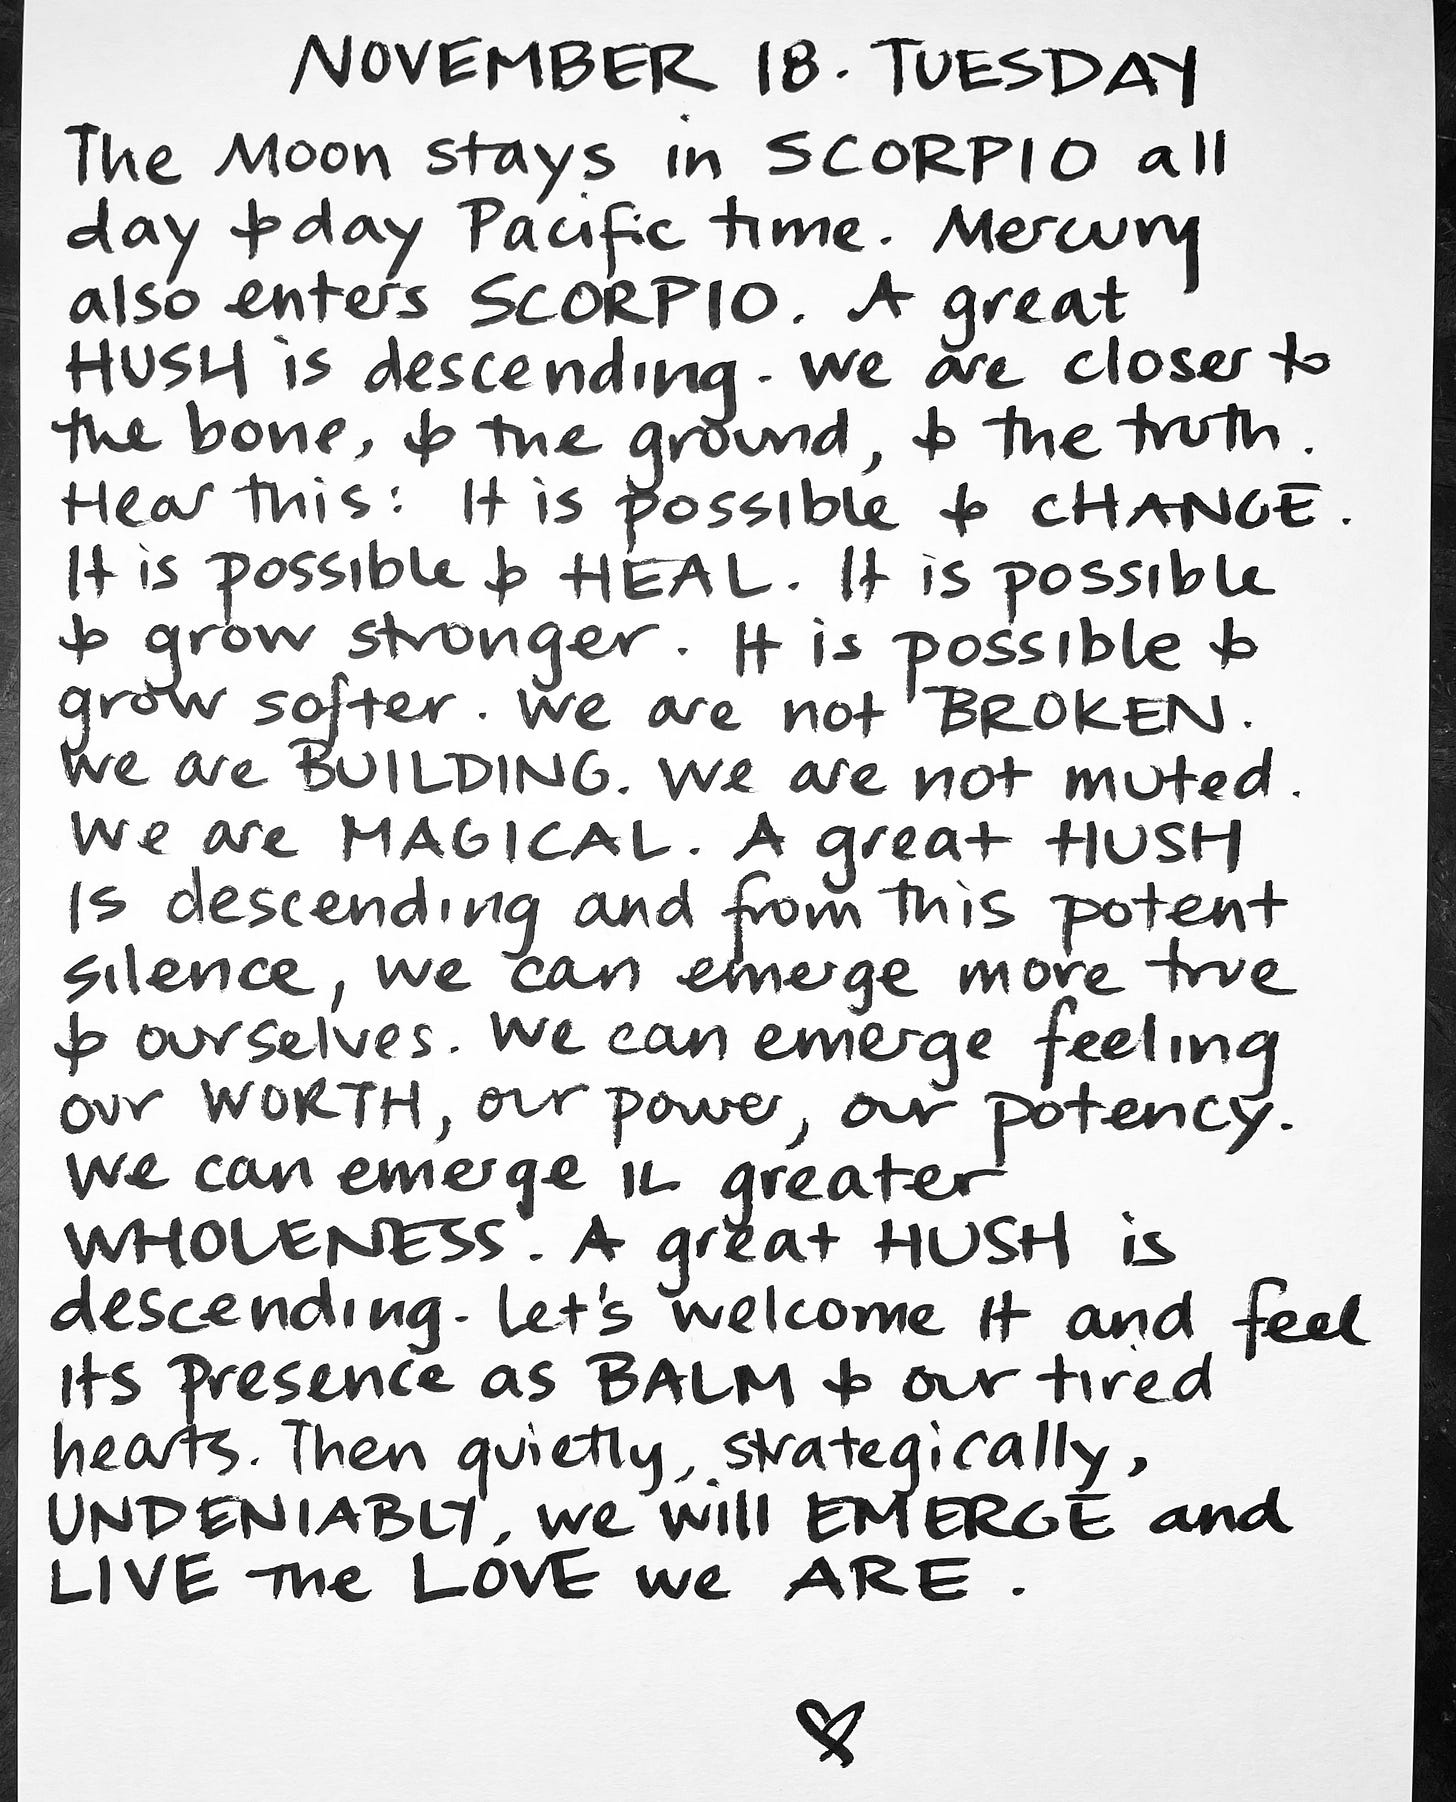 NOVEMBER 18. TUESDAY
The Moon stays in SCORPIO all
day today Pacific time. Mercury
also enters SCORPIO. A great
HUSH is descending. We are closer to
the bone, to the ground, to the truth.
Hear this: It is possible to CHANGE.
It is possible to HEAL. It is possible
to grow stronger. It is possible to
grow softer. We are not BROKEN.
We are BUILDING. We are not muted.
We are MAGICAL. A great HUSH
Is descending and from this potent
silence, we can emerge more true
to ourselves. We can emerge feeling
our WORTH, our power, our potency.
We can emerge in greater
WHOLENESS. A great HUSH is
descending. Let's welcome it and feel
its presence as BALM to our tired
hearts. Then quietly, strategically,
UNDENIABLY, we will EMERGE and
LIVE the LOVE we ARE.